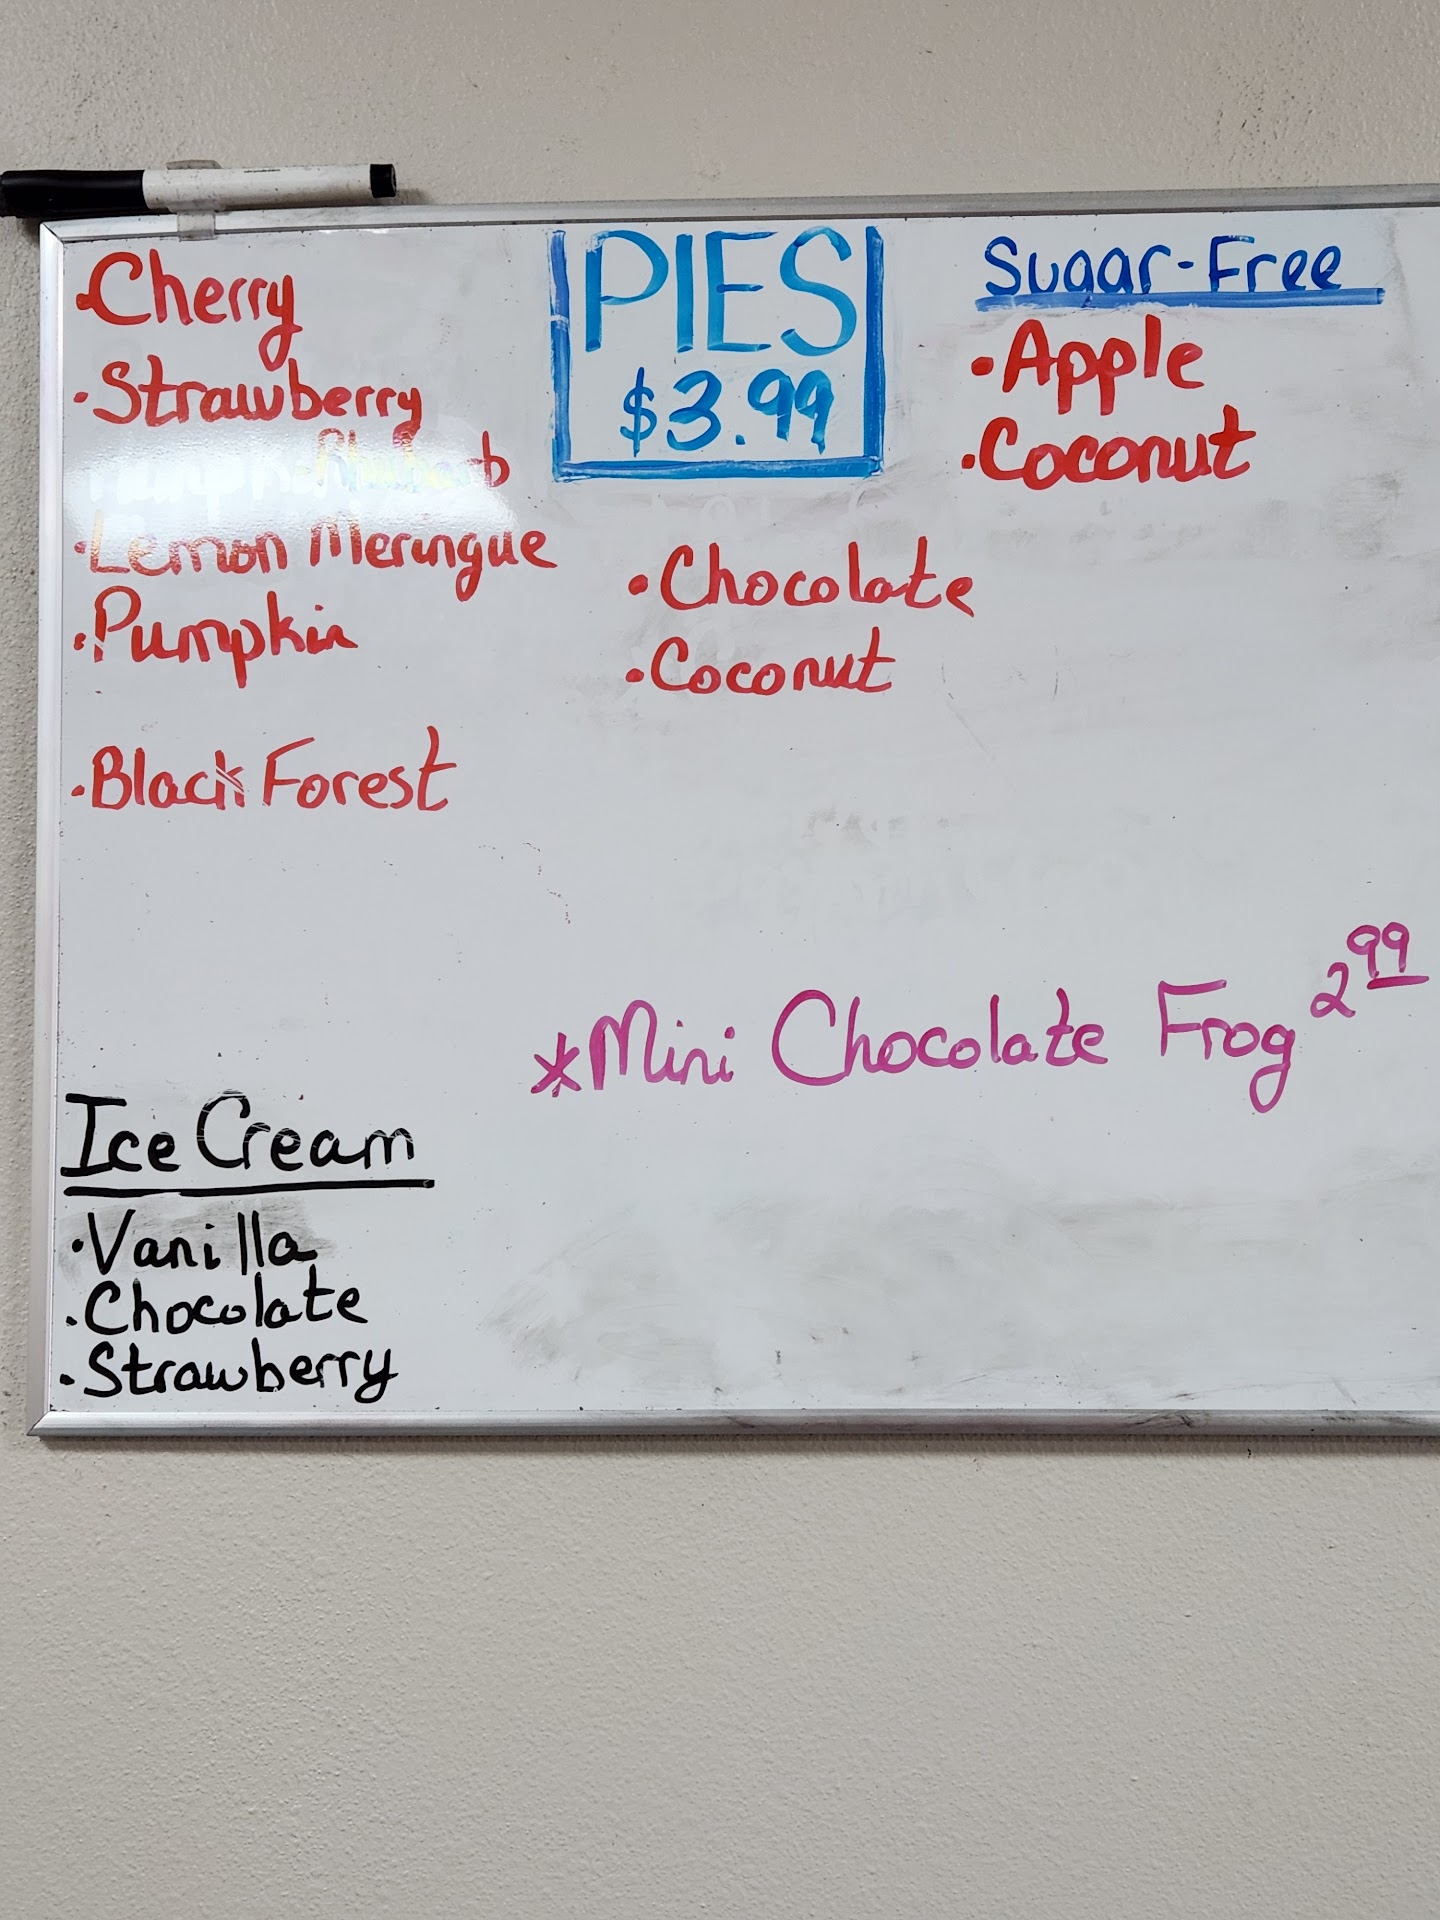 •Cherry
•Strawberry
-Rhubarb
•Lemon Meringue
•Pumpkin
•Black Forest
PIES
$3.99
•Chocolate
•Coconut
Sugar-Free
•Apple
•Coconut
*Mini Chocolate Frog 2 99
Ice Cream
•Vanilla
•Chocolate
•Strawberry